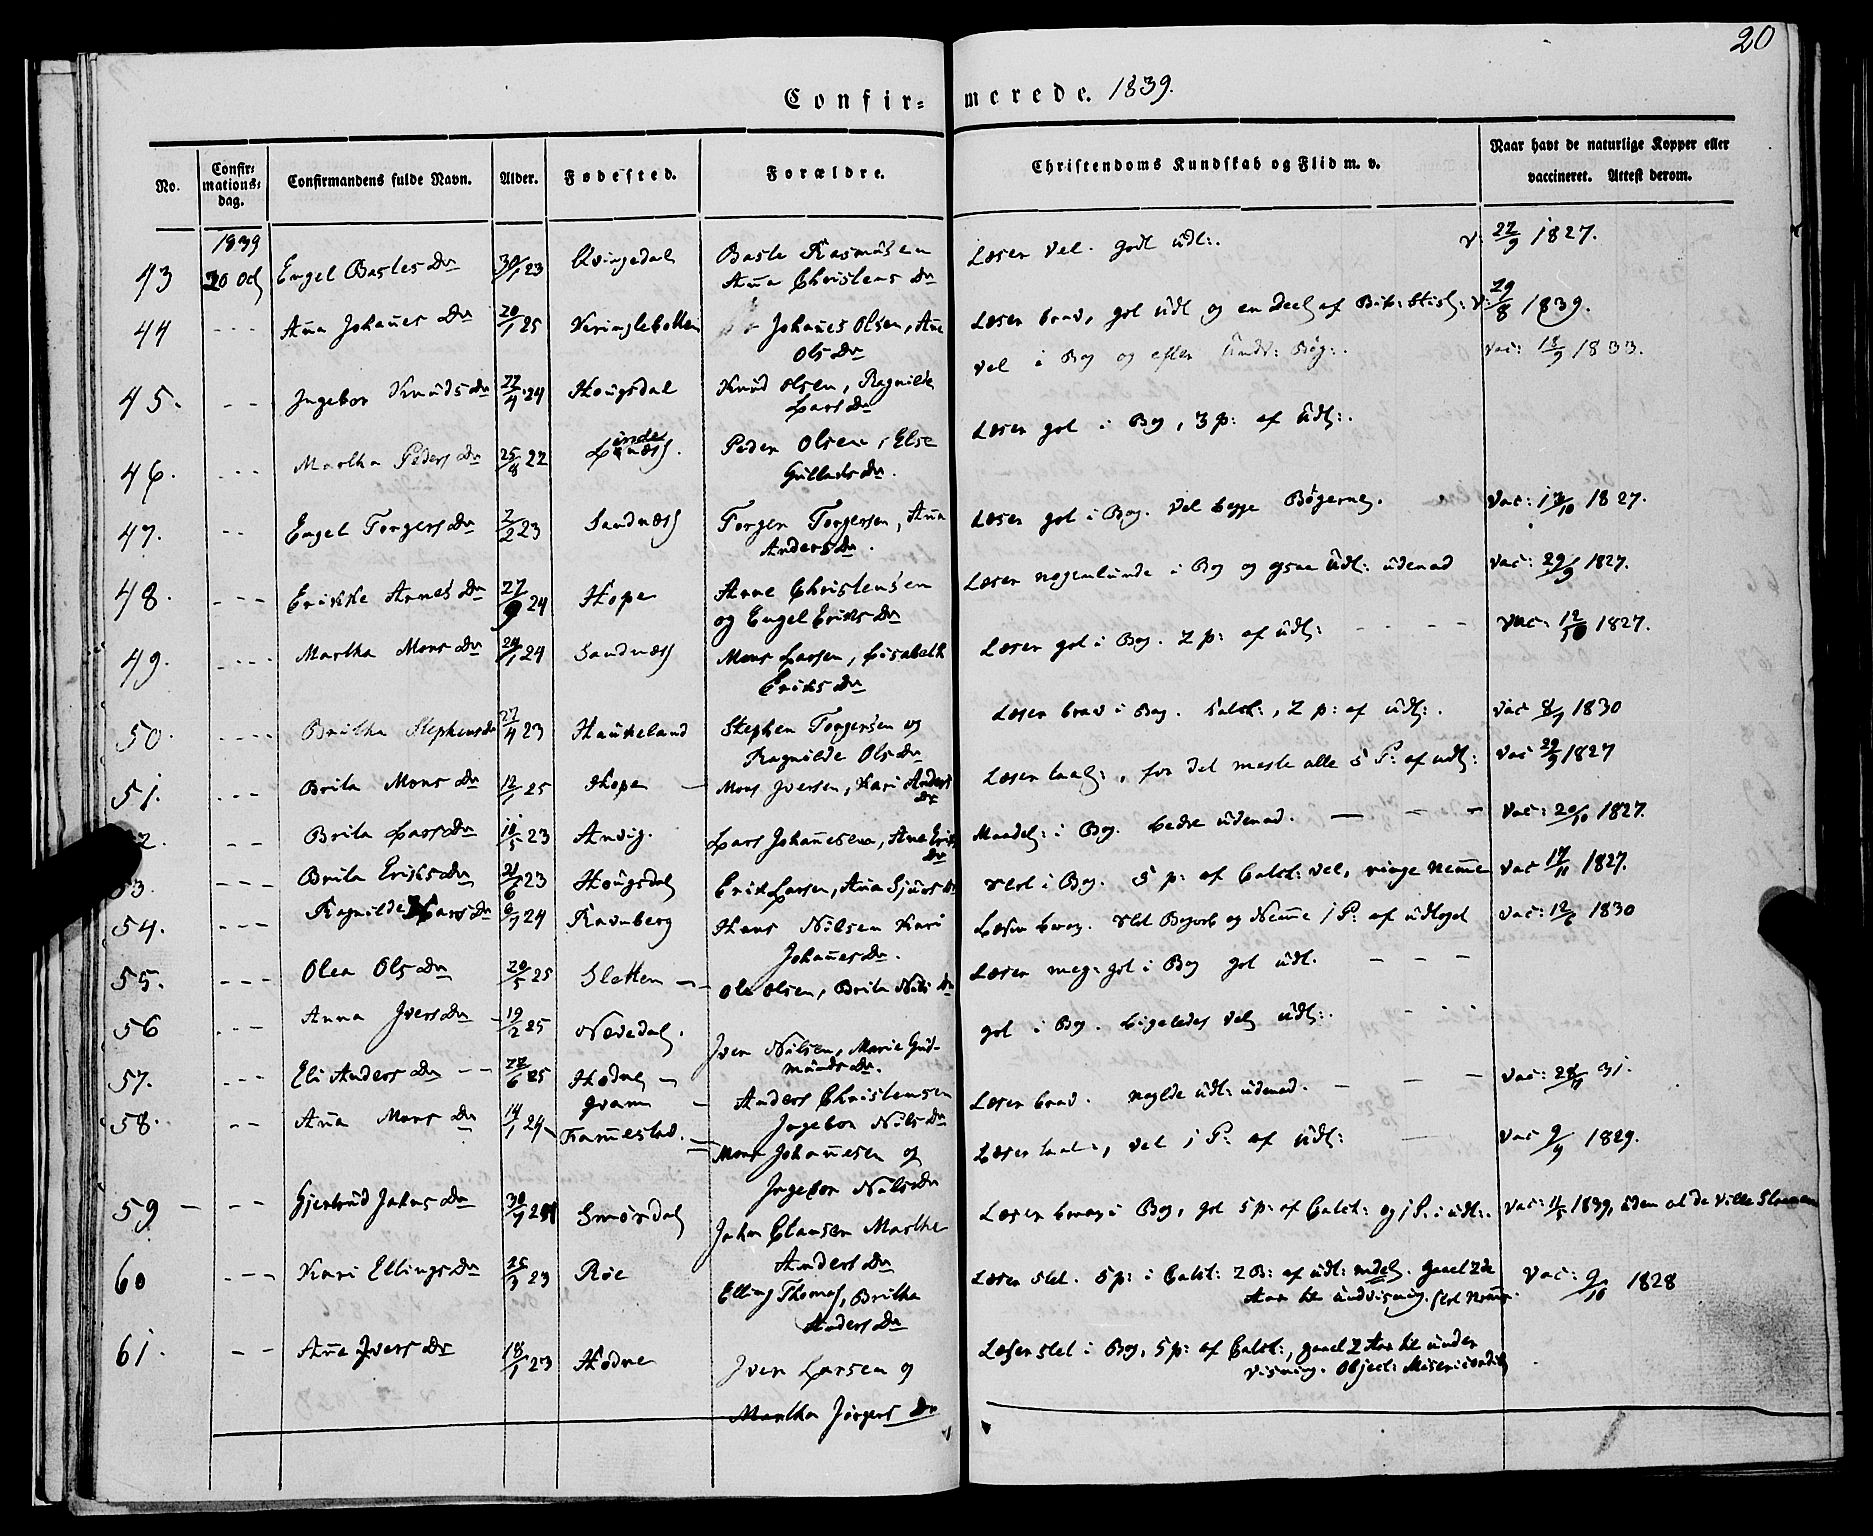 20
Confir=merede. 1839.
No.
Confir=
mations=
dag.
Confirmandens fulde Navn.
Alder.
Fødested.
Forældre.
Christendoms Kundskab og Flid m. v.
Naar havt de naturlige Kopper eller
vaccineret. Attest derom.
1839
43 Engel Bastes Dn 30/1 23 Qvingedal Baste Rasmusen
Anna Christens Dn
Læser vel. godt udt:. v: 22/9 1827.
44 --- Anna Johannes Dn 20/1 25 Johannes Olsen, Ane
Ols Dn
Læser brav, got udt og en Deel af v: 29/8 1839.
45. -- Ingebor Knuds Dn 22/4 24 Hougsdal Knud Olsen, Ragnilde
Lars Dn
vel i Bog og efter Bøg:. Vac: 18/9 1833.
46. --- Martha Peders Dn 25/8 22 Peder Olsen, Else
Gulleks Dn.
Læser got i Bog, 3 p: af Udt:.
47. -- Engel Torgers Dn 2/2 23 Sandnæss Torger Torgersen, Anna
Anders Dn.
Læser got i Bog. Vel begge Bøgerne. Vac: 12/10 1827.
48. --- Erikke Arnes Dn 27/9 24 Hope Arne Christensen
og Engel Eriks Dn
Læser nogenlunde i Bog og ogsaa Udt: udenad Vac: 29/9 1827.
49. ---- Martha Mons Dn 24 Sandnæss Mons Larsen, Lisabeth
Eriks Dn
Læser got i Bog. 2 p: af udt: ---- Vac: 12/10 1827.
50. ---- Britha Stephens Dn 27/4 23 Haukeland Stephen Torgersen og
Ragnilde Ols Dn
Læser brav i Bog. Catek:, 2 p: af udt:. Vac 1830
51. --- Brita Mons Dn 12/1 25 Hope — Mons Iversen, Kari Anders
Dn
Læser taal:, for det meste alle 5 P: af udt: Vac 29/9 1827
52. -- Brita Lars Dn 18/5 23 Anvig. Lars Johannesen, Ane Eriks
Dn
Maadel: i Bog. bedre udenad. — — — Vac: 20/10 1827.
53. --- Brita Eriks Dn 21/6 23 Hougsdal Erik Larsen, Anna Sjurs Dn
slet i Bog. 5 p: af Catek: vel, ringe Nemme Vac 17/11 1827.
54. --- Ragnilde Hans Dn 24 Ravnberg Hans Nilsen Kari
Johannes Dn.
Læser brav. slet Begreb og Nemme 1 P: af udtoget Vac: 12/6 1830
55. --- Olea Ols Dn 20/5 25 Sletten — Ole Olsen, Brita Nils Dn
Læser meg: got i Bog got udt. — — —
56 --- Anna Ivers Dn 19/2 25 Nævedal. Iver Nilsen, Marie Gud-
munds Dn.
got i Bog. Ligeledes vel udt:. - - -
57. --- Eli Anders Dn -- 22/6 25 Hodne — Anders Christensen
Ingebor Nils Dn
Læser brav. udt: udenad. — — — Vac: 31.
58. -- Anna Mons Dn 14/1 24 Tannestad. Mons Johannesen og
Ingebor Nils Dn
Læser taal:, vel 1 P: af udt: — Vac 9/9 1829.
59 — -- Gjertrud Jahns Dn 30/9 Smørdal Jahn Clausen Marthe
Anders Dn
Læser i Bog, got 5 p: af Catek: og 1 P: i udt:. Vac: 11/5 1839, uden at de ville
60 --- Kari Ellings Dn 25/9 23 Røe Elling Thomas, Britha
Anders Dn
Læser slet. 5 p: i Catek: 2 B: af udt: mdel. gaaet 2de
Aar til undvisning. slet Nemme.
Vac: 9/10 1828
61. -- Anne Ivers Dn 18/1 23 Hodne Iver Larsen og
Martha Jørgens Dn
Læser slet i Bog, 5 p: af Catek:, gaaet 2 Aar til under
visning. Object: Misericordiæ